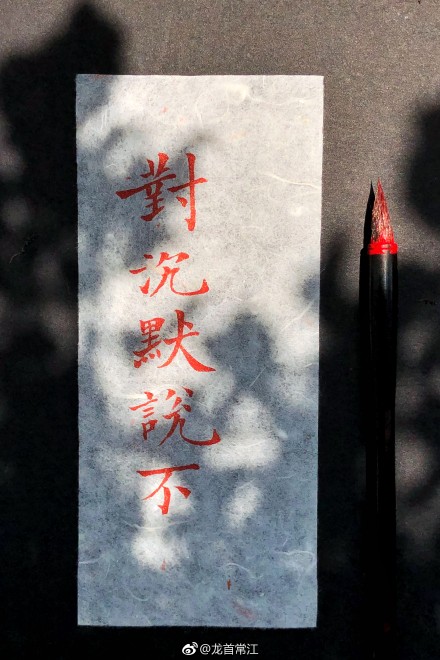 對沉默說不
@龙首常江